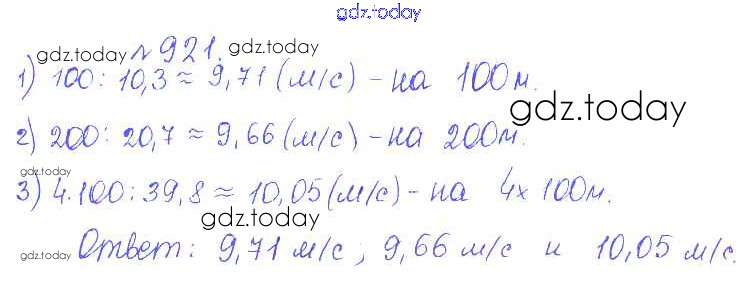 gdz.today
gdz.today № 921. gdz.today
1) 100 : 10,3 ≈ 9,71 (м/с) - на 100 м.
gdz.today
2) 200 : 20,7 ≈ 9,66 (м/с) - на 200 м.
gdz.today
3) 4·100 : 39,8 ≈ 10,05 (м/с) - на 4х100 м.
gdz.today
gdz.today Ответ: 9,71 м/с ; 9,66 м/с и 10,05 м/с.